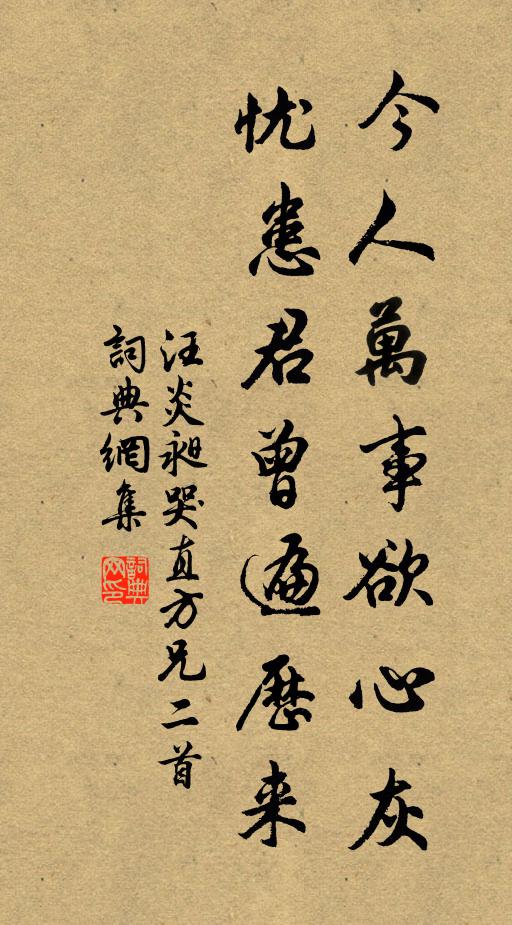 今人萬事欲心灰
忧患君曾遍歷来
汪炎昶哭直方兄二首
詞典網集
詞典网印